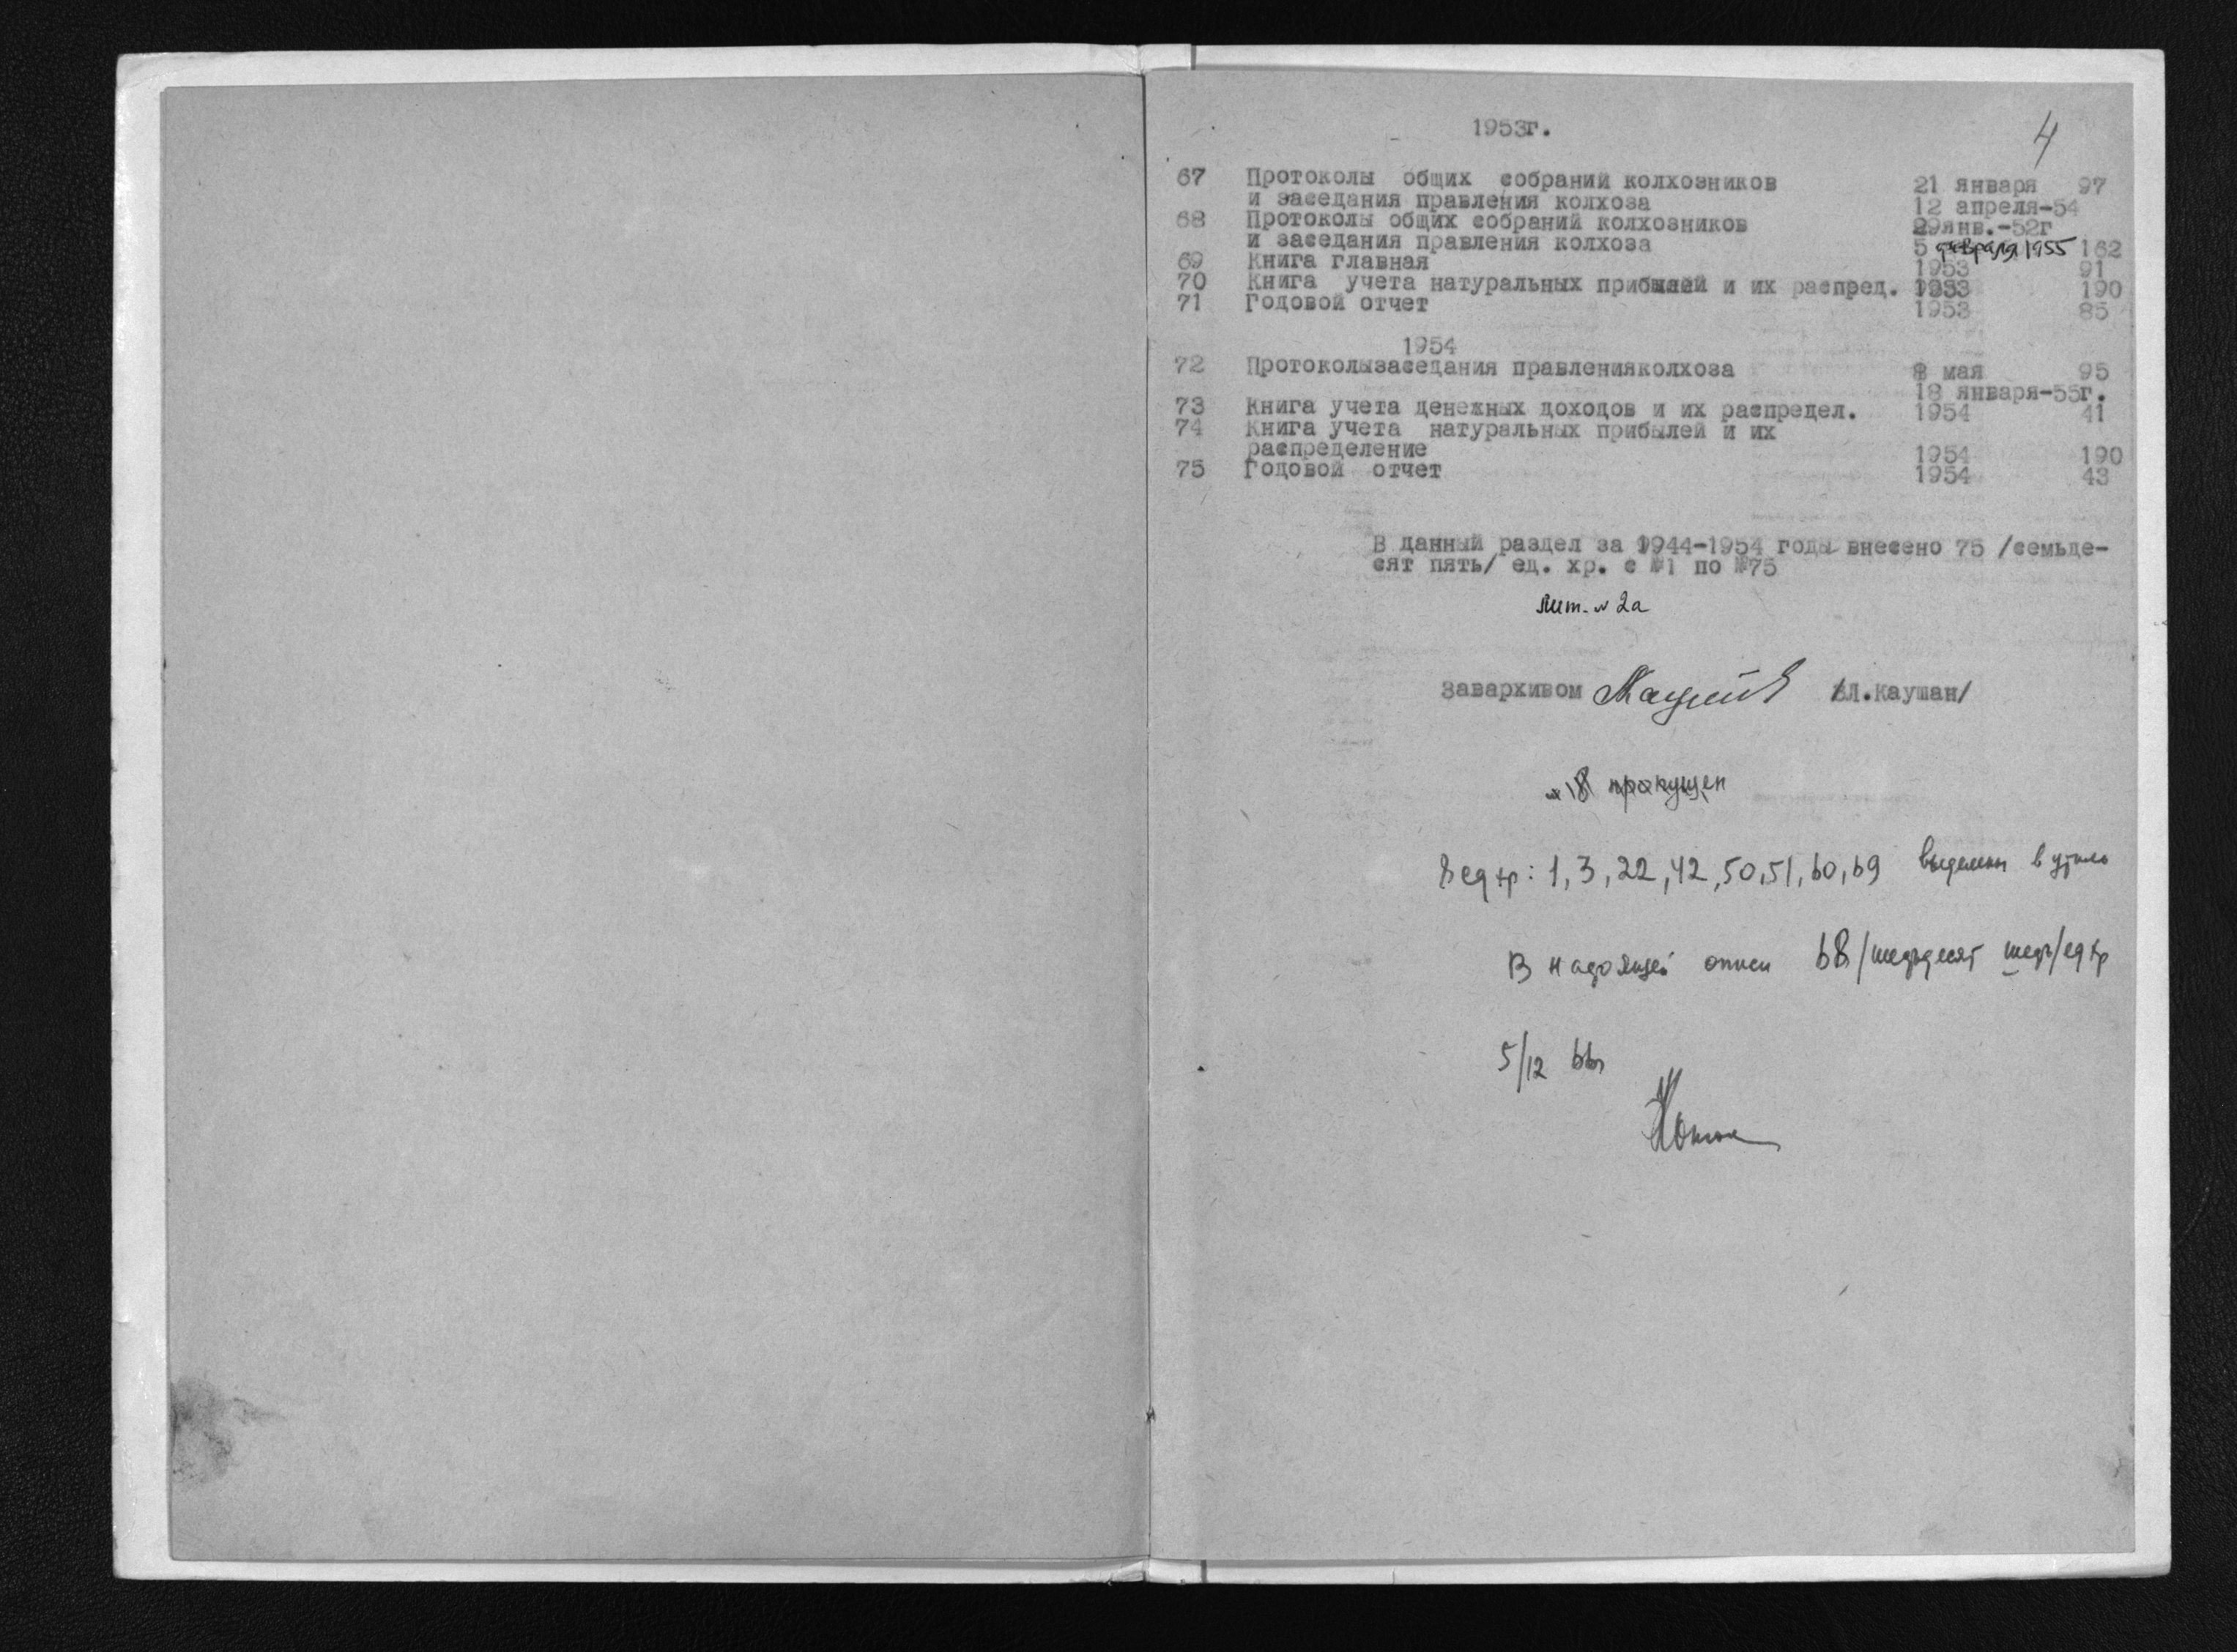 1953г.
4
67 Протоколы общих собраний колхозников 21 января 97
и заседания правления колхоза 12 апреля-54
68 Протоколы общих собраний колхозников 29янв.-52г
и заседания правления колхоза 5 февраля 1955 162
69 Книга главная 1953 91
70 Книга учета натуральных прибылей и их распред. 1953 190
71 Годовой отчет 1953 85
1954
72 Протоколызаседания правленияколхоза 8 мая 95
18 января-55г.
73 Книга учета денежных доходов и их распредел. 1954 41
74 Книга учета натуральных прибылей и их
распределение 1954 190
75 Годовой отчет 1954 43
В данный раздел за 1944-1954 годы внесено 75 /семьде-
сят пять/ ед. хр. с №1 по №75
лит. № 2а
Завархивом /Л.Каушан/
№ 18 пропущен
8 ед хр: 1, 3, 22, 42, 50, 51, 60, 69 выделены в утиль
В настоящей описи 68 /шестьдесят / ед хр
5/12 66г